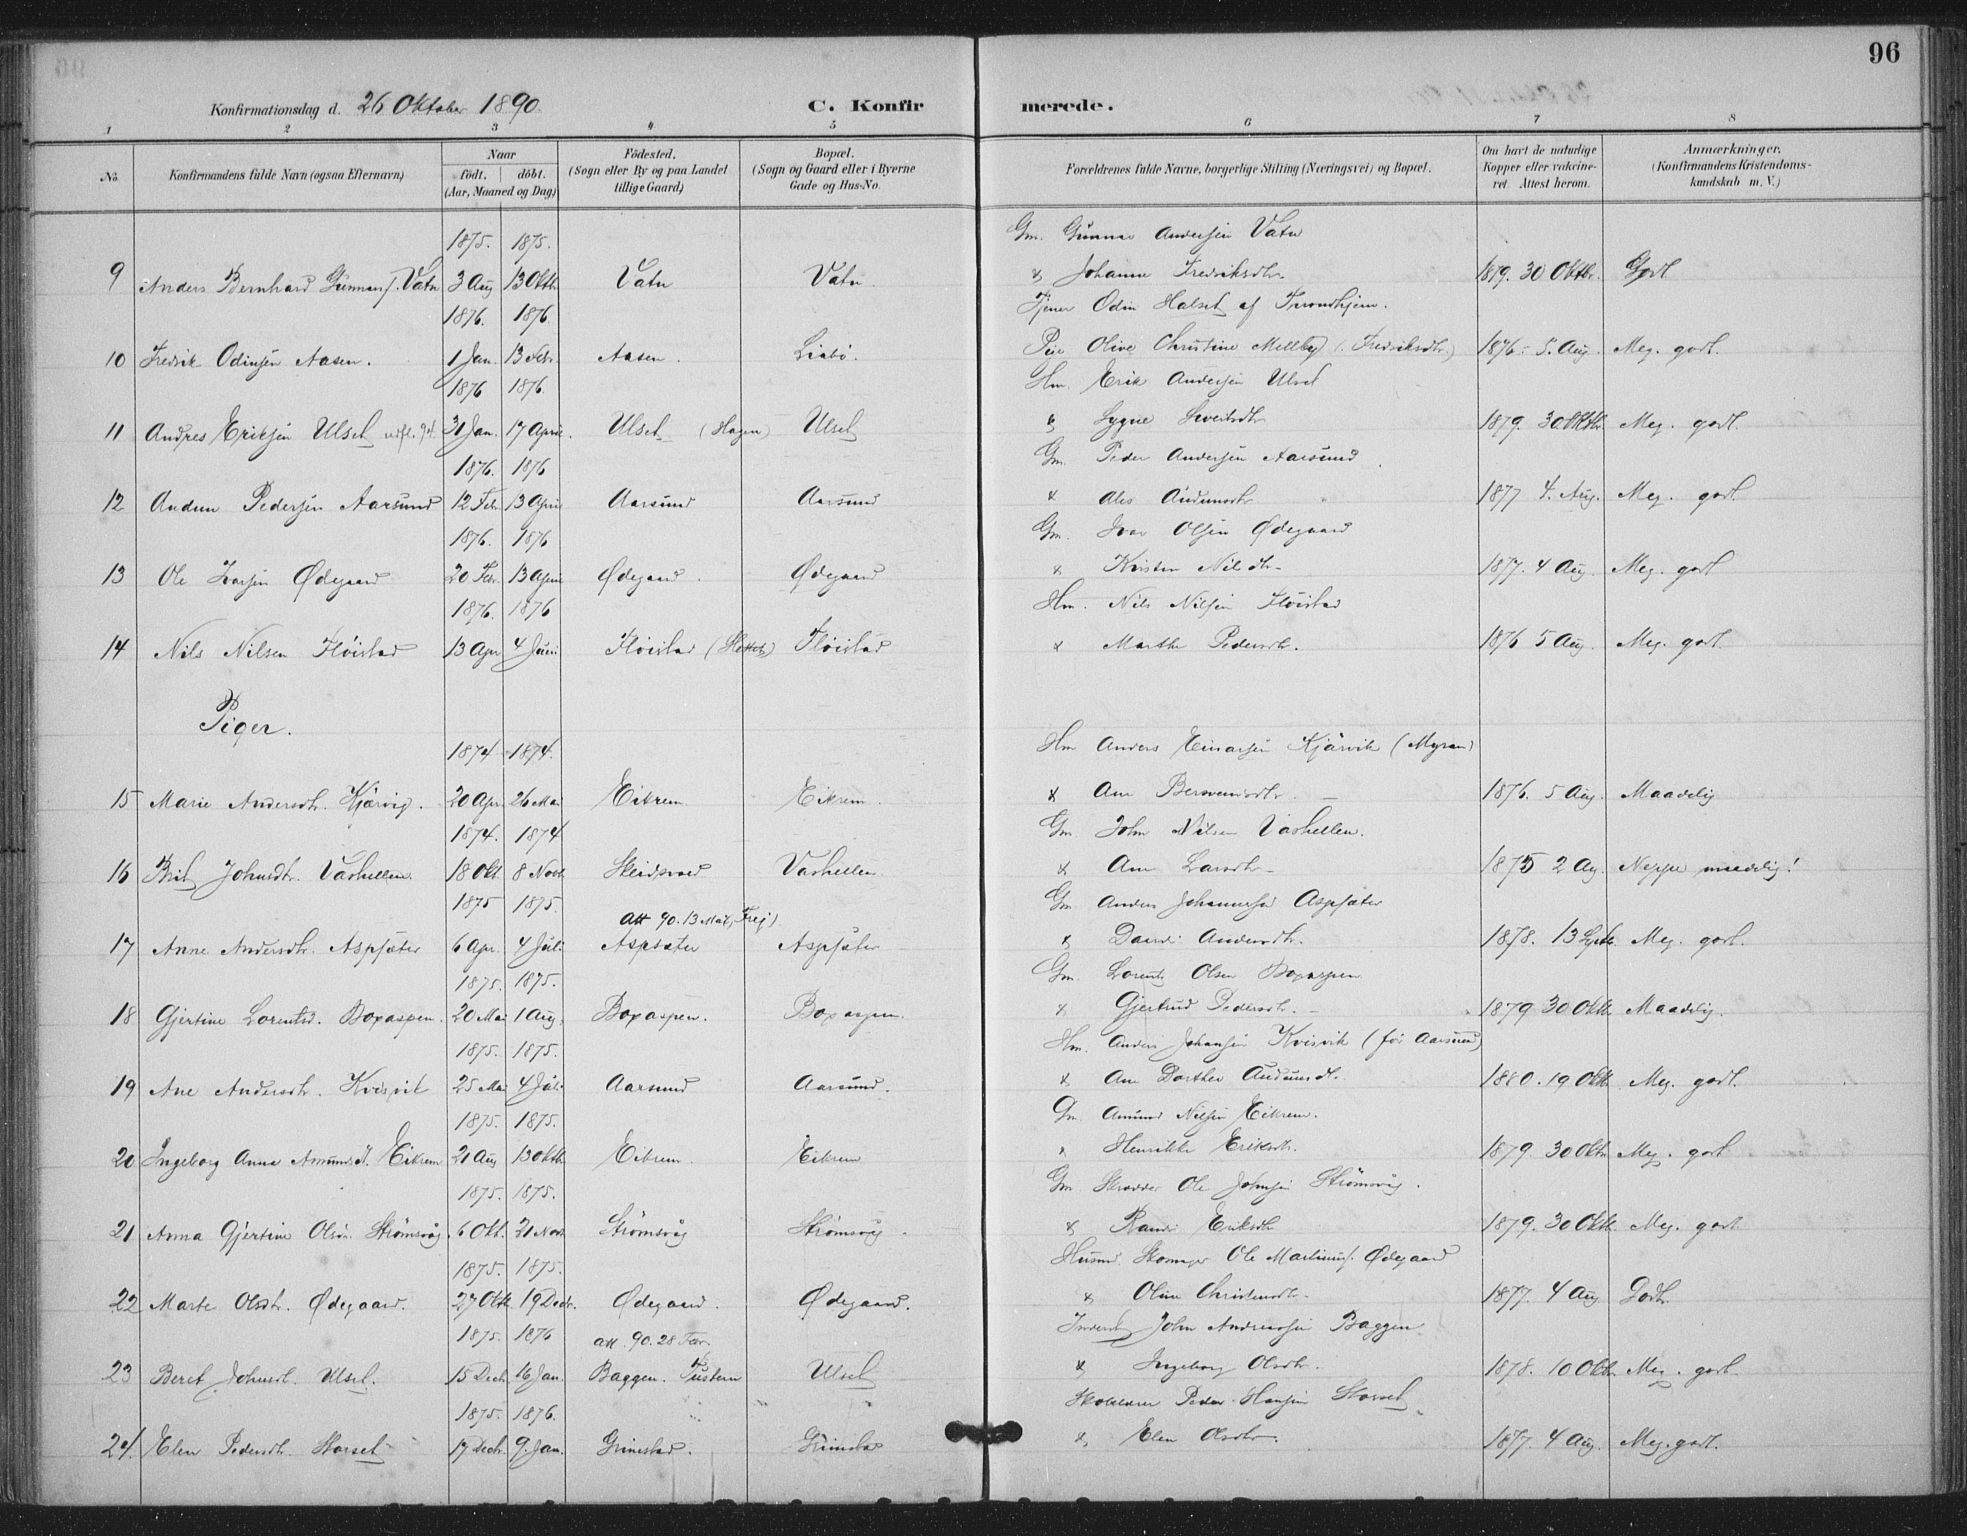 96
Konfirmationsdag d. 26 Oktober 1890. C. Konfirmerede.
1 2 3 4 5 6 7 8
No. Konfirmandens fulde Navn (ogsaa Efternavn) Naar født. døbt. (Aar, Maaned og Dag) Fødested. (Sogn eller By og paa Landet tillige Gaard) Bopæl. (Sogn og Gaard eller i Byerne Gade og Hus-No. Forældrenes fulde Navne, borgerlige Stilling (Næringsvei) og Bopæl. Om havt de naturlige Kopper eller vakcineret. Attest herom. Anmærkninger. (Konfirmandens Kristendomskundskab m. V.)
1875. 1875. Gm. Gunnar Andersen Vatn
9 Anders Bernhard Gunnars. Vatn 3 Aug 13 Oktb Vatn Vatn. & Johanne Fredriksdtr. 1879. 30 Oktbr. Godt
1876. 1876. Tjener Odin Halset af Trondhjem.
10 Fredrik Odinsen Aasen. 1 Jan. 13 Febr. Aasen. Liabø. Pige Olive Christine Mellby (Fredriksdtr.) 1876. 5. Aug. Meg. godt.
1876 1876. Hm. Erik Andersen Ulset
11 Andres Eriksen Ulset 31 Jan. 17 April. Ulset (Hagen) Ulset & Sygne Sivertsdtr 1879. 30 Oktbr. Meg. godt.
1876. 1876 Gm. Peder Andersen Aarsund
12 Audun Pedersen Aarsund 12 Febr. 13 April Aarsund Aarsund & Ales Audunsdtr 1877 4. Aug. Meg. godt.
1876. 1876 Gm. Ivar Olsen Ødegaard
13 Ole Ivarsen Ødegaard 20 Febr. 13 April Ødegaard. Ødegaard & Kristen Nilsdtr. 1877. 4 Aug. Meg. godt
1876. 1876 Hm. Nils Nilsen Fløistad
14 Nils Nilsen Fløistad 13 Apr 4 Juni Fløistad Fløistad & Marthe Pedersdtr. 1876 5 Aug. Meg. godt.
Piger.
1874. 1874. Hm Anders Einarsen Kjørvik (Myran)
15 Marie Andersdtr. Kjørvig. 20 Apr. 26 Mai Eikrem Eikrem. & Ane Bersvensdtr. 1876. 5 Aug. Maadelig
1874. 1874 Gm. John Nilsen Vashellen.
16 Brit Johnsdtr. Vashellen. 18 Okt 8 Novb. Skeidsvad Vashellen. & Ane Larsdtr. 1875 2 Aug. Neppe maadelig!
1875 1875. Att 90. 13 Mai, Frej) Gm Anders Johannesen Aspsæter
17 Anne Andersdtr. Aspsæter 6 Apr. 4 Juli Aspsæter Aspsæter & Dardi Andersdtr. 1878. 13 Septbr. Meg. godt.
1875. 1875. Gm. Lorents Olsen Boxaspen
18 Gjertine Lorentsd. Boxaspen. 20 Mai 1 Aug. Boxaspen. Boxaspen. & Gjertrud Pedersdtr. 1879 30 Oktb. Maadelig.
1875. 1875. Hm. Anders Johansen Kvisvik (før Aarsund)
19 Ane Andersdtr. Kvisvik 25 Mai 4 Juli Aarsund Aarsund. & Ane Dorthea Audunsdt. 1880. 19 Oktb. Meg. godt.
1875. 1875. Gm. Amund Nilsen Eikrem.
20 Ingeborg Anna Amundsd. Eikrem 21 Aug 13 Oktb. Eikrem. Eikrem & Henrikke Eriksdtr. 1879. 30 Oktbr Meg. godt
1875. 1875. Gm. Skrædder Ole Johnsen Strømsvåg.
21 Anna Gjertine Olsdr. Strømsvåg. 6 Okt. 21 Novb. Strømsvåg Strømsvåg. & Randi Eriksdtr 1879. 30 Oktb. Meg. godt
1875. 1875. Husmd. Skomager Ole Martinus. Ødegaard
22 Marte Olsdtr. Ødegaard. 27 Oktb. 19 Decbr. Ødegaard. Ødegaard. & Oline Christensdtr. 1877. 4 Aug Godt.
1875. 1876 att. 90. 28 Inderst John Andreassen Baggen
23 Beret Johnsd. Ulset. 15 Decb. 16 Jan. Baggen. Tustern Ulset & Ingeborg Olsdtr. 1878. 10 Oktbr. Meg. godt.
1875. 1876. Skolelærer Peder Hansen Storset
24. Elen Pedersdtr. Storset 17 Decb. 9. Jan. Grimstad. Grimstad & Elen Olsdtr. 1877. 4 Aug. Meg. godt.